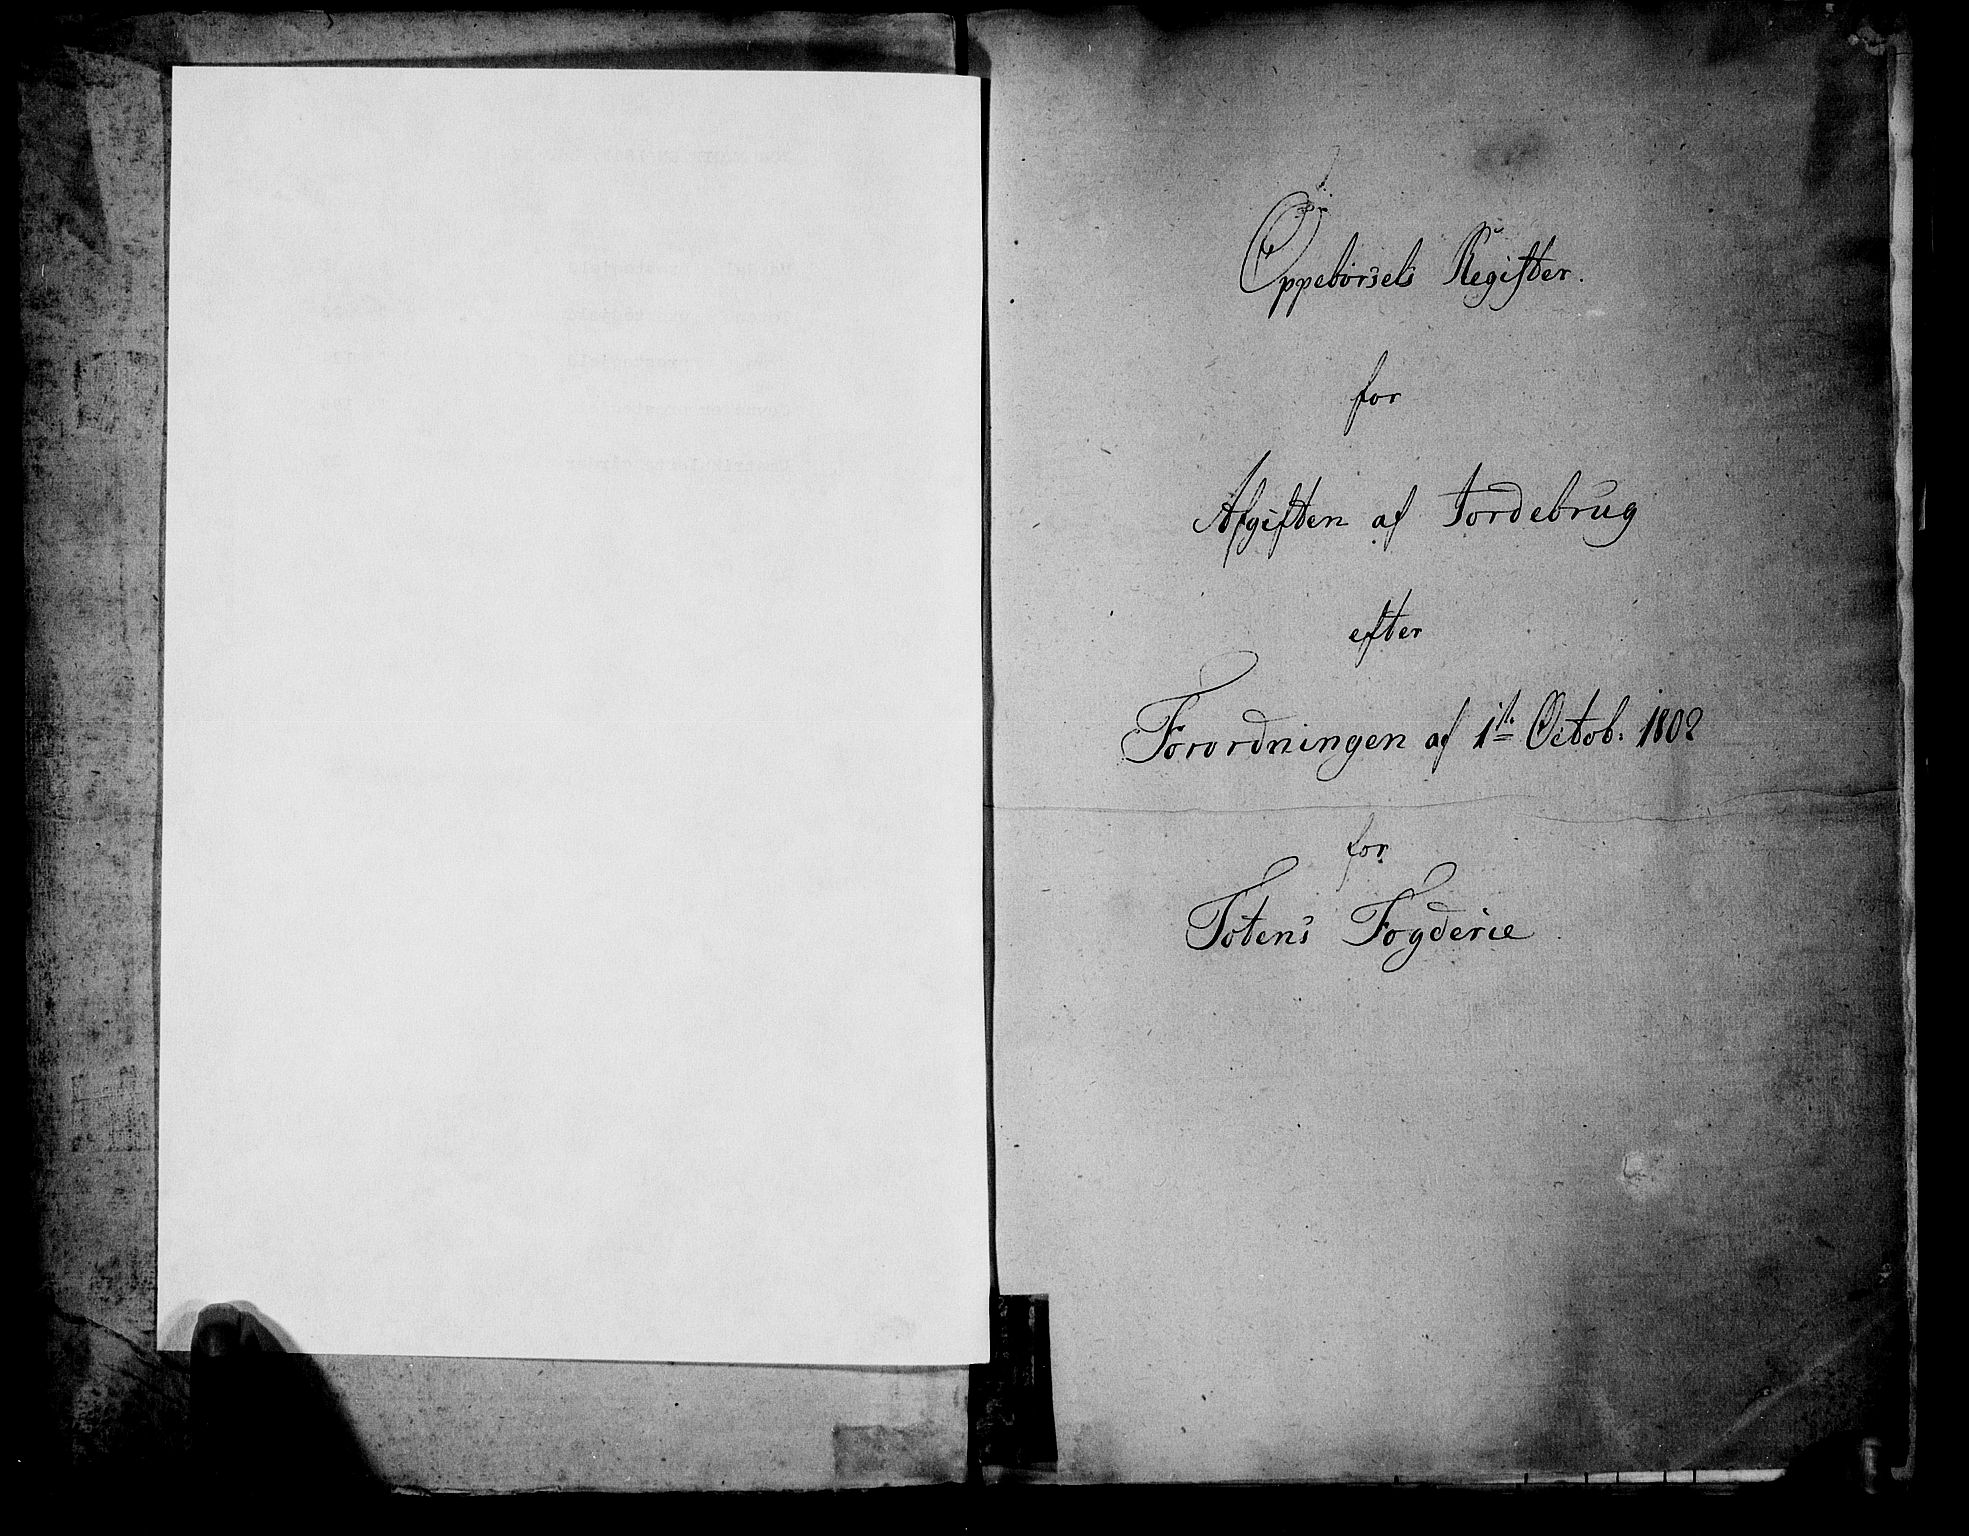 Oppebørsels Register.
for
Afgiften af Jordebrug
efter
Forordningen af 1te Octob. 1802
for
Totens Fogderie